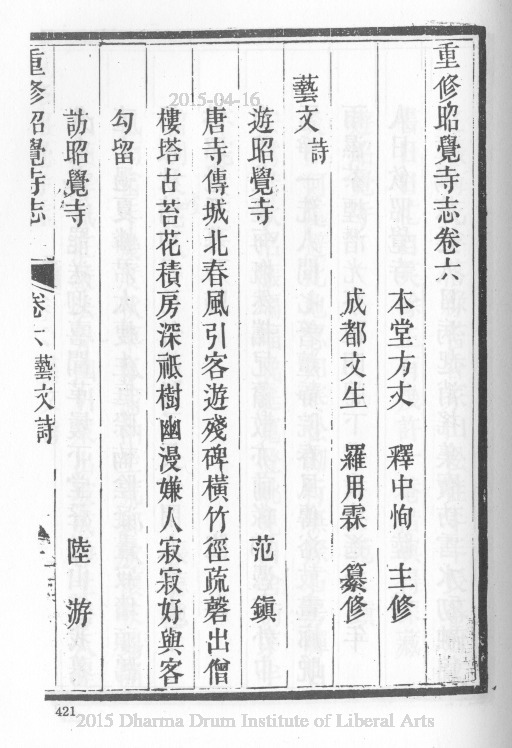 重修昭覺寺志卷六
本堂方丈　釋中恂　主修
成都文生　羅用霖　纂修
藝文詩
遊昭覺寺　范鎮
唐寺傳城北春風引客遊殘碑橫竹徑疏磬出僧
樓塔古苔花積房深祗樹幽漫嫌人寂寂好與客
勾留
訪昭覺寺　陸游
重修昭覺寺志　卷六　藝文詩
2015-04-16
421
2015 Dharma Drum Institute of Liberal Arts